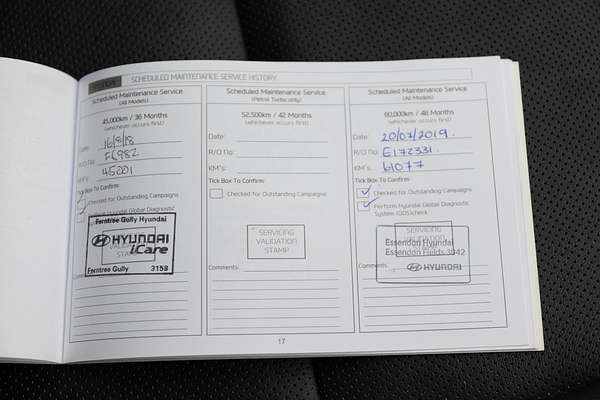 HYUNDAI SCHEDULED MAINTENANCE SERVICE HISTORY
Scheduled Maintenance Service
(All Models)
45,000km / 36 Months
(whichever occurs first)
Date: 16/8/18
R/O No: F6982
KM's: 45201
Tick Box To Confirm:
Checked for Outstanding Campaigns
Hyundai Global Diagnostic
Ferntree Gully Hyundai
HYUNDAI
iCare
STAMP
Ferntree Gully 3156
Scheduled Maintenance Service
(Petrol Turbo only)
52,500km / 42 Months
(whichever occurs first)
Date:
R/O No:
KM's:
Tick Box To Confirm:
Checked for Outstanding Campaigns
SERVICING
VALIDATION
STAMP
Comments:
Scheduled Maintenance Service
(All Models)
60,000km / 48 Months
(whichever occurs first)
Date: 20/07/2019.
R/O No: E172331
KM's: 61077
Tick Box To Confirm:
Checked for Outstanding Campaigns
Perform Hyundai Global Diagnostic
System (GDS) check
SERVICING
VALIDATION
Essendon Hyundai
Essendon Fields 3042
HYUNDAI
Comments:
17